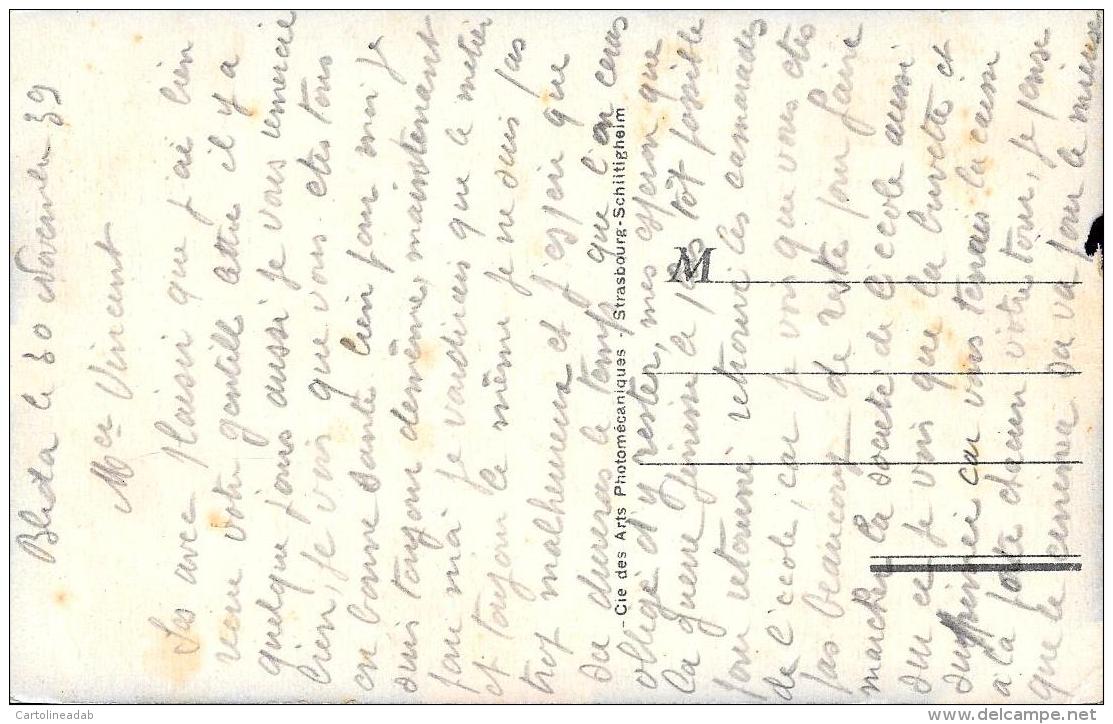 le 30 Novembre 39
Mer Vincent
Ses avec plaisir que j'ai bien
recu votre gentille lettre il y a
quelque jours aussi je vous remercie
bien, je vois que vous etes tous
en bonne santé bien pour moi je
suis toujour de même maintenant
pour moi je voudrais que le métier
et toujour le même je ne suis pas
trop malheureux et j'espèr que
sa durera le temp que l'on cera
obligé d'y rester, mes esperon que
la guerre finira le plus tôt possible
pour retourné retrouvé les camarades
de l'école, car je vois que vous etes
pas beaucoup de reste pour faire
marcher la socete de l'ecole aussi
sur ce je vois que la buvette et
suprimée car vous tenens la caisse
a la porte chacun votre tour, je pense
que le sa va pour le mieux
- Cie des Arts Photomécaniques - Strasbourg-Schiltigheim
M
Cartolineadab
delcampe.net